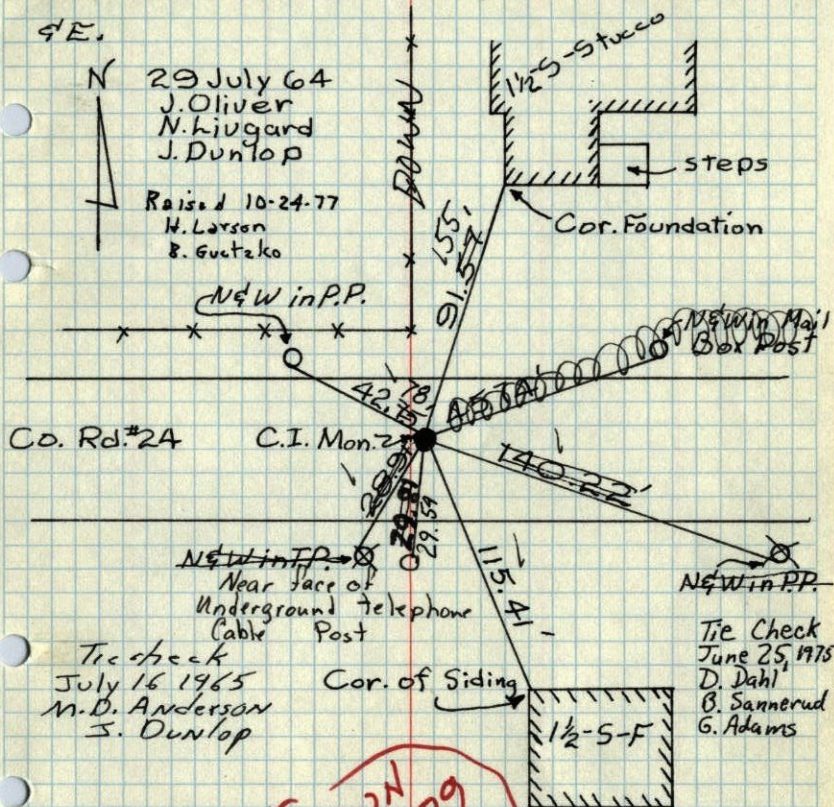 & E.
N
29 July 64
J. Oliver
N. Livgard
J. Dunlop
Raised 10-24-77
H. Larson
B. Guetzko
DOWN
1½-S-Stucco
steps
Cor. Foundation
155'
91.57'
N&W in P.P.
N&W in Mail
Box Post
78'
42.75'
Co. Rd. #24
C.I. Mon.
140.22'
29.81
29.59
115.41'
N&W in T.P.
Near face of
Underground telephone
Cable Post
N&W in P.P.
Tie check
July 16 1965
M.D. Anderson
J. Dunlop
Cor. of Siding
1½-S-F
Tie Check
June 25, 1975
D. Dahl
B. Sannerud
G. Adams